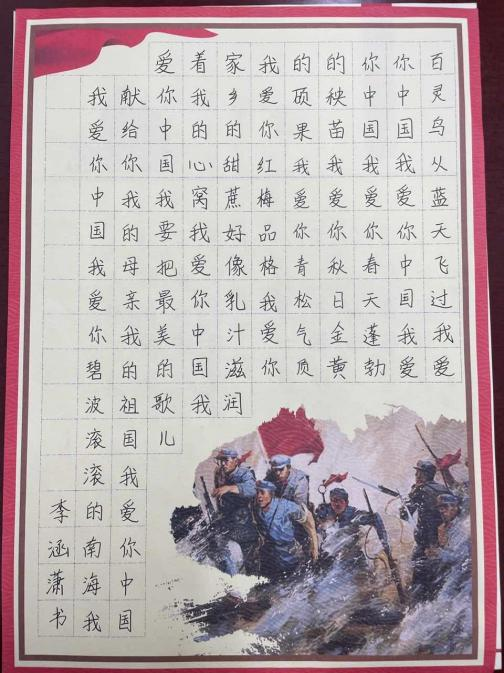 百灵鸟从蓝天飞过我爱
你中国我爱你中国我爱
你中国我爱你春天蓬勃
的秧苗我爱你秋日金黄
的硕果我爱你青松气质
我爱你红梅品格我爱你
家乡的甜蔗好像乳汁滋润
着我的心窝我爱你中国我
爱你中国我要把最美的歌儿
献给你我的母亲我的祖国我爱你中国
我爱你中国我爱你碧波滚滚的南海我
李涵潇书